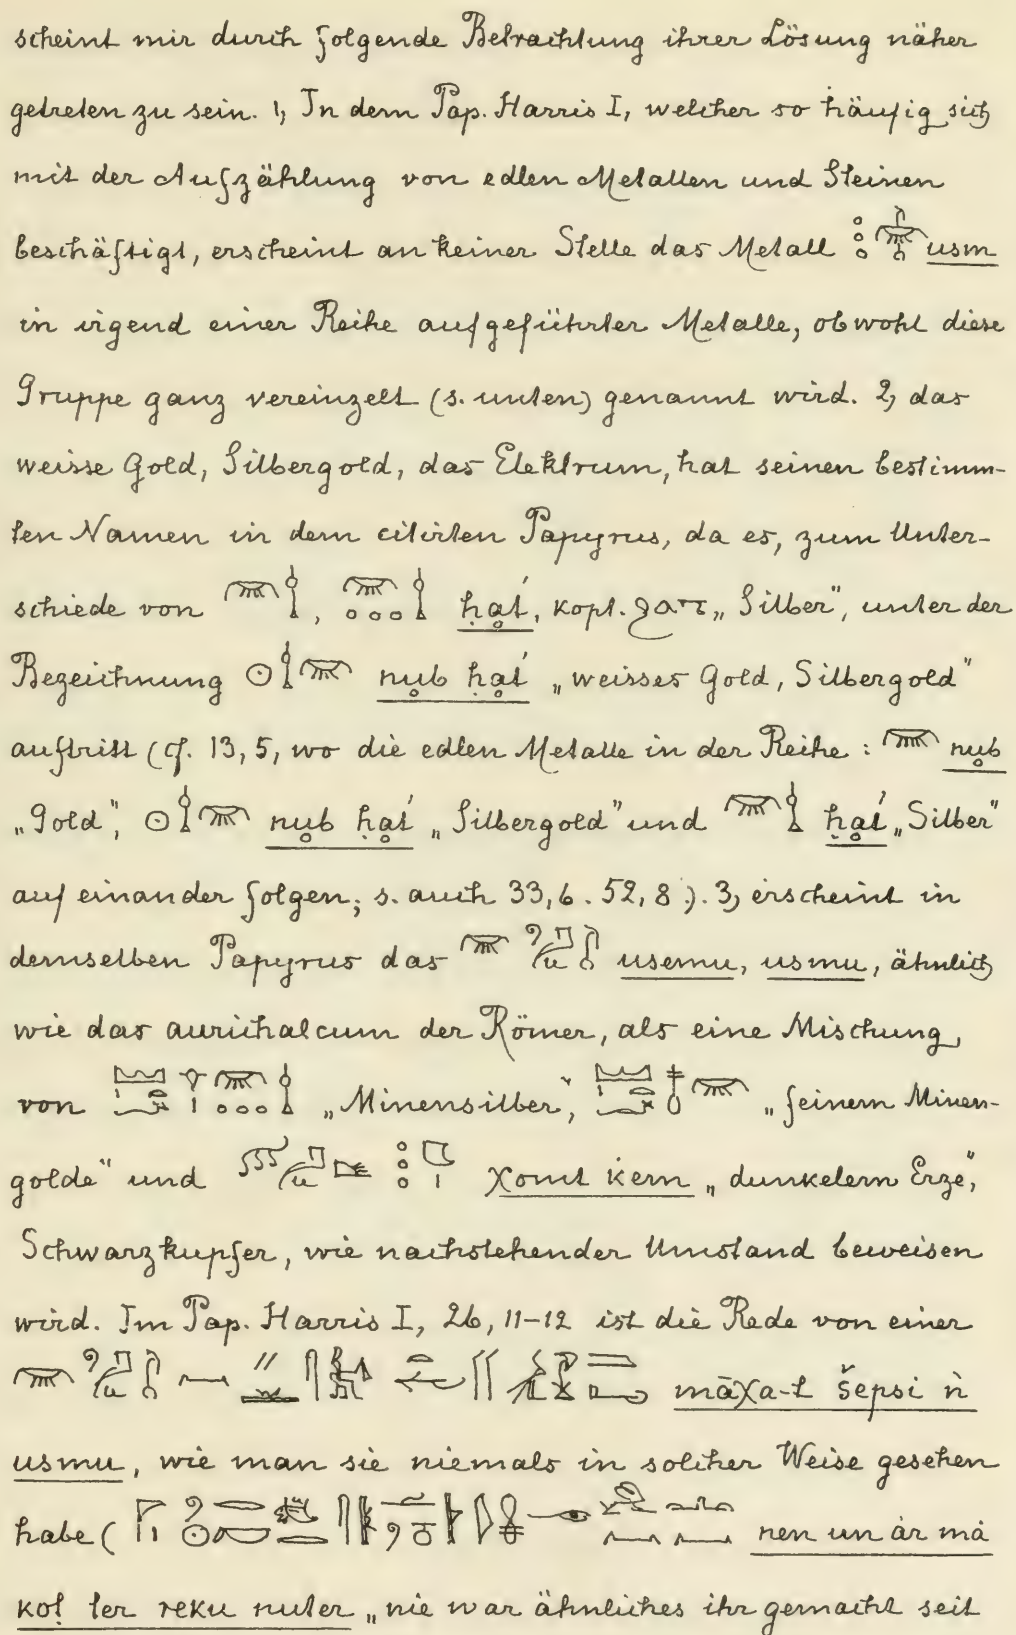 scheint mir durch folgende Betrachtung ihrer Lösung näher
getreten zu sein. 1, In dem Pap. Harris I, welcher so häufig sich
mit der Aufzählung von edlen Metallen und Steinen
beschäftigt, erscheint an keiner Stelle das Metall usm
in irgend einer Reihe aufgeführter Metalle, obwohl diese
Gruppe ganz vereinzelt (s. unten) genannt wird. 2, das
weisse Gold, Silbergold, das Elektrum, hat seinen bestimm-
ten Namen in dem citirten Papyrus, da es, zum Unter-
schiede von , ḥat́, kopt. ϩⲁⲧ „Silber", unter der
Bezeichnung nub ḥat́ „weisses Gold, Silbergold"
auftritt (cf. 13,5, wo die edlen Metalle in der Reihe: nub
„Gold", nub ḥat́ „Silbergold" und ḥat́ „Silber"
auf einander folgen; s. auch 33,6. 52,8). 3, erscheint in
demselben Papyrus das usemu, usmu, ähnlich
wie das aurichalcum der Römer, als eine Mischung
von „Minensilber", „feinem Minen-
golde" und χomt kem „dunkelem Erze",
Schwarzkupfer, wie nachstehender Umstand beweisen
wird. Im Pap. Harris I, 26, 11-12 ist die Rede von einer
māχa-t šepsi n
usmu, wie man sie niemals in solcher Weise gesehen
habe ( nen un ár má
kot ter reku nuter „nie war ähnliches ihr gemacht seit